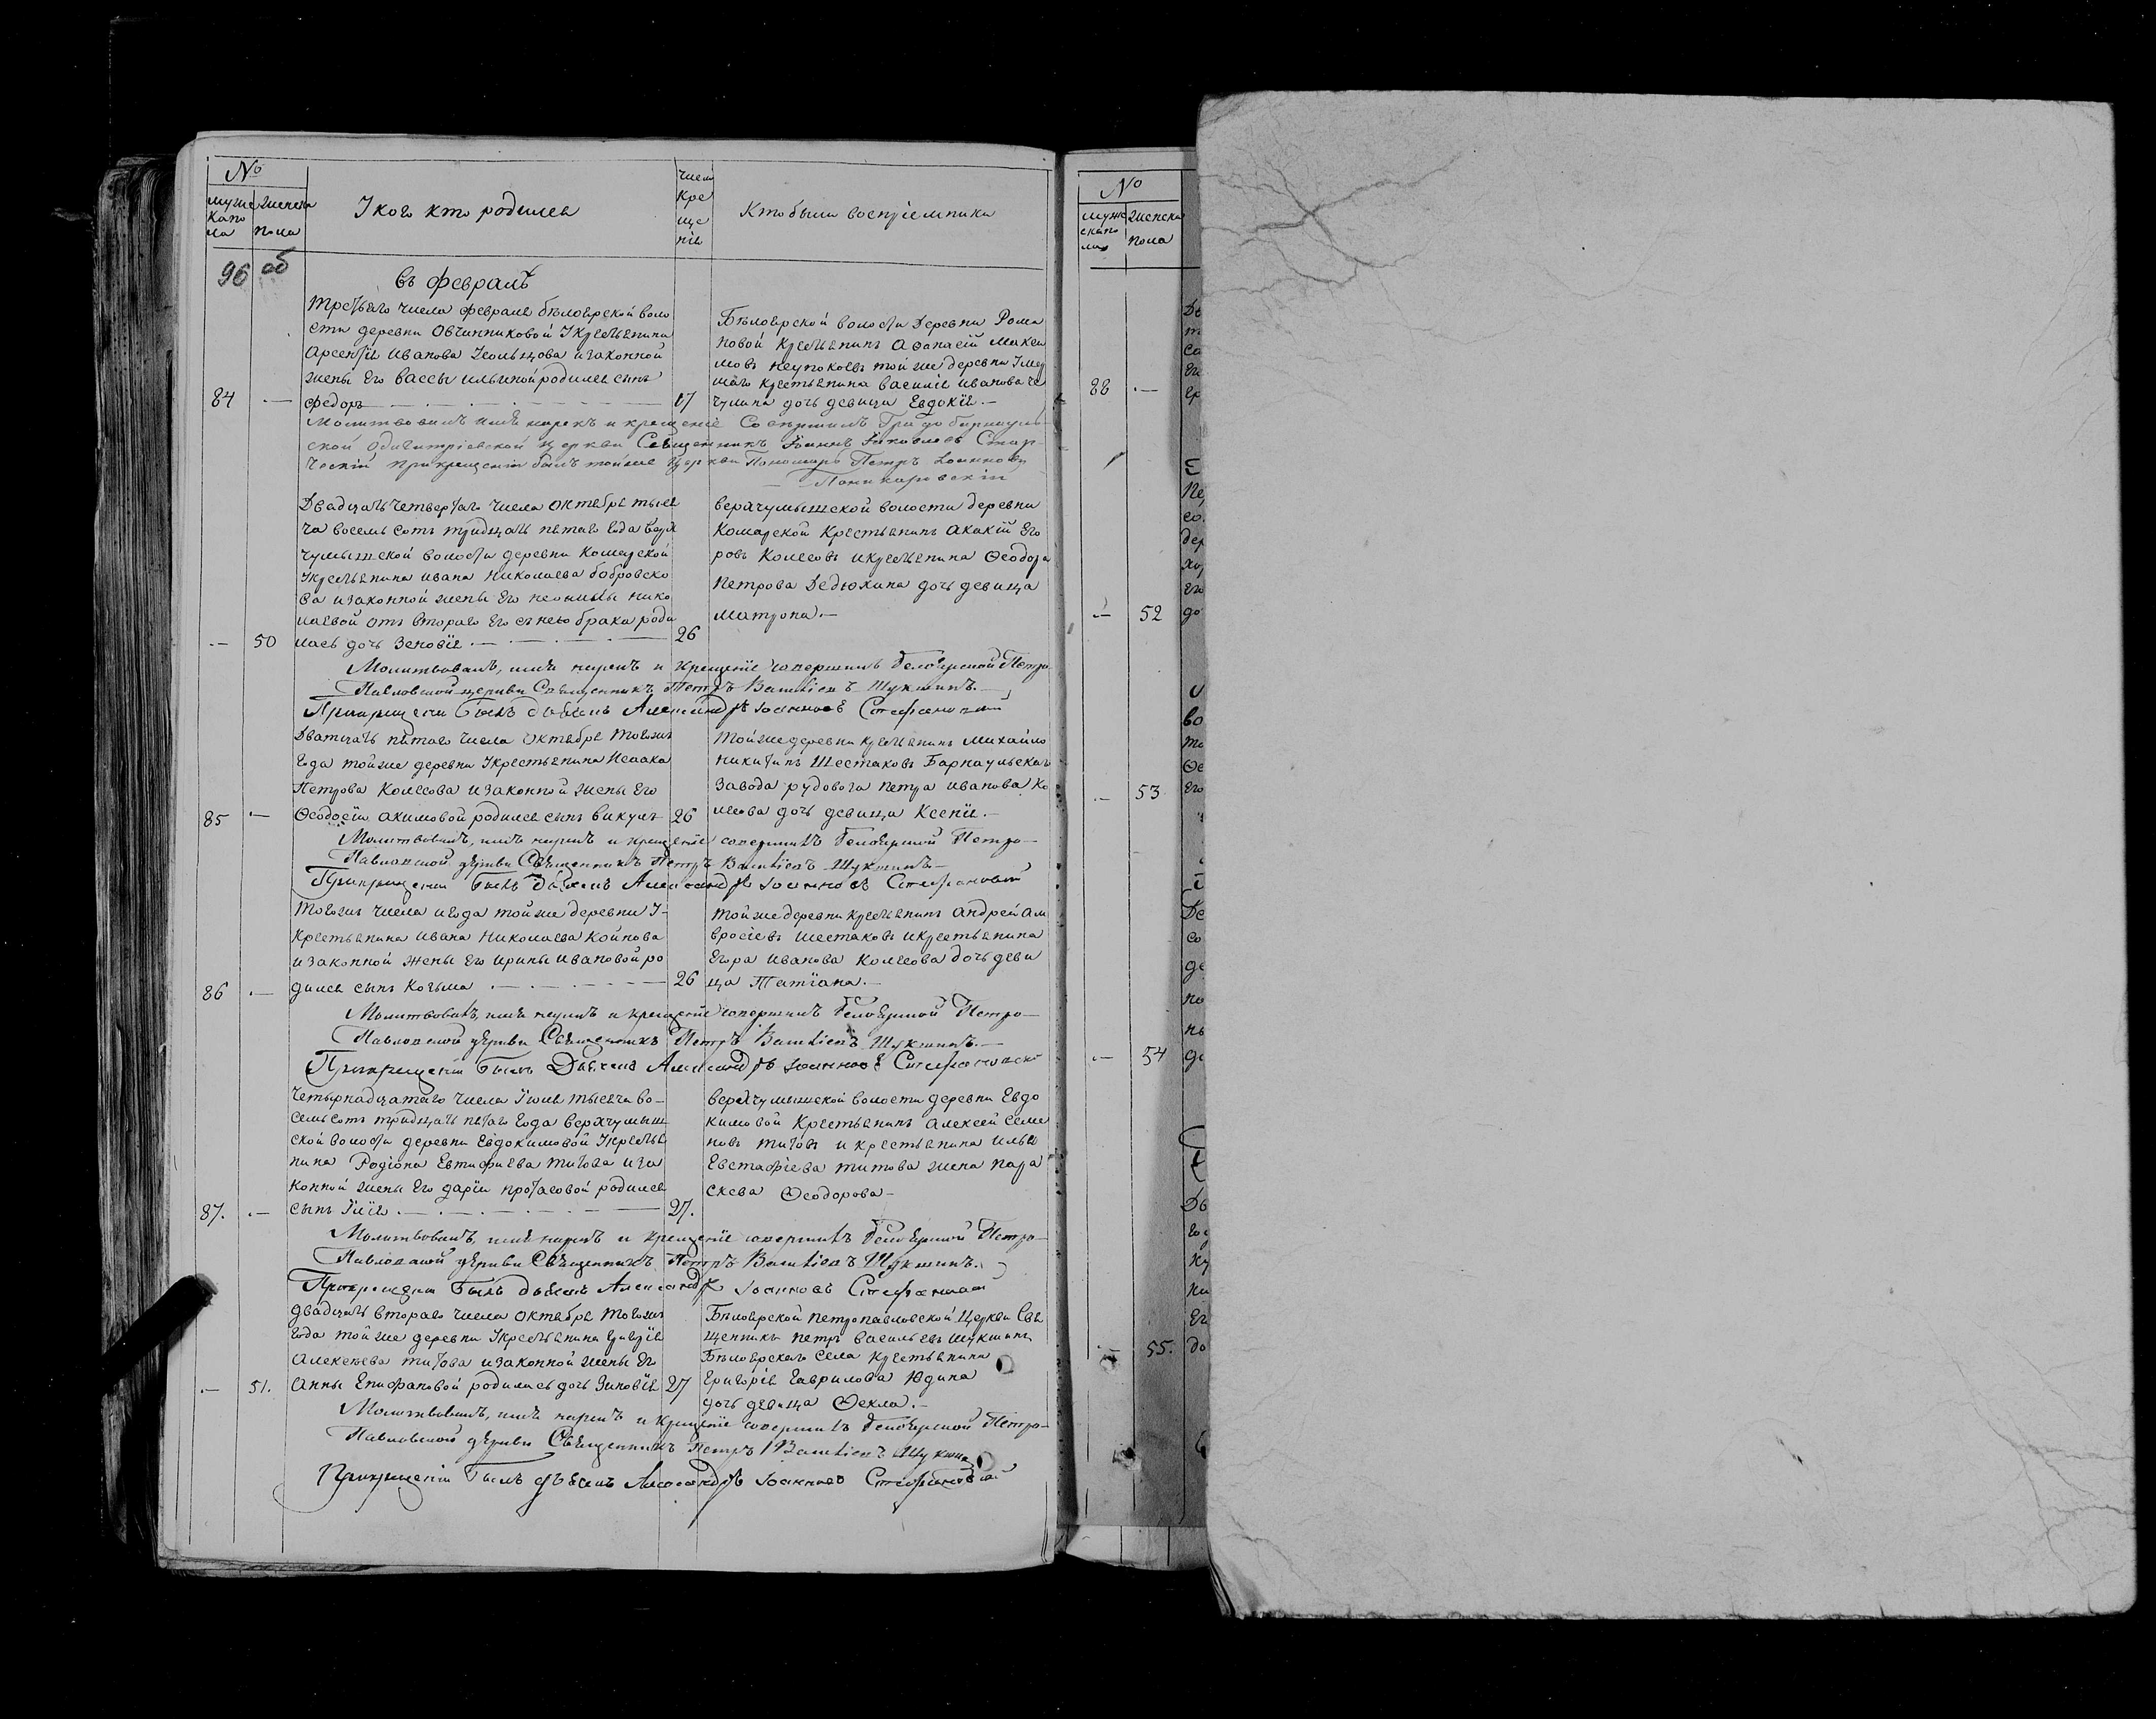 №
муже каго
ла
женска
пола
Ꙋ кого кто родился
число
кре
ще
нія
Кто были воспріемники
96 об
въ февралѣ
Третьяго числа февраля бѣлоярской воло
сти деревни Овчинниковой Ꙋ крестьянина
Арсентія Иванова
и законной
жены Его вассы ильиной родился сынъ
84 - федоръ 17
Бѣлоярской волости деревни Рома
новой крестьянинъ Афанасій Макси
мовъ неупокоевъ той же деревни Ꙋмер
шаго крестьянина василія иванова че
чулина дочь девица Евдокія.
Молитвовалъ имя нарекъ и крещеніе Совершилъ Градо барнауль
ской Одигитріевской церкви Священникъ Іоаннъ
При крещеніи былъ той же Церкви Пономарь Петръ Іоанновъ
Двадцать четвертаго числа октября тыся
ча восемь сотъ тридцать пятаго года верх
чумышской волости деревни Комарской
Ꙋ крестьянина ивана николаева бобровско
ва и законной жены его неонилы нико
лаевой отъ втораго его съ нею брака роди
- 50 лась дочь Зеновія 26
верхчумышской волости деревни
Комарской Крестьянинъ Акакій Его
ровъ Колесовъ и крестьянина Ѳеодора
Петрова Дедюхина дочь девица
матрона.
Молитвовалъ, имя нарекъ и крещеніе совершилъ Белоярской Петро-
Павловской церкви Священникъ Петръ Василіевъ Шукшинъ.
При крещеніи былъ дьячекъ Александръ Іоанновъ Стефановскій
Дватцать пятаго числа октября тогожъ
года той же деревни Ꙋ крестьянина Исаака
Петрова Колесова и законной жены его
85 - Ѳеодосіи Акимовой родился сынъ викулъ 26
Той же деревни крестьянинъ Михайло
никитинъ Шестаковъ Барнаульскаго
завода рудовоза петра иванова Ко
лесова дочь девица Ксенія.
Молитвовалъ, имя нарекъ и крещеніе совершилъ Белоярской Петро-
Павловской церкви Священникъ Петръ Василіевъ Шукшинъ.
При крещеніи былъ дьячекъ Александръ Іоанновъ Стефановскій
Тогожъ числа и года той же деревни Ꙋ-
крестьянина ивана николаева Койнова
и законной жены Его ирины ивановой ро
86 - дился сынъ Козьма 26
Той же деревни крестьянинъ Андрей Ам
вросіевъ шестаковъ и крестьянина
Егора иванова Колесова дочь деви
ца Татіана.
Молитвовалъ, имя нарекъ и крещеніе совершилъ Белоярской Петро-
Павловской церкви Священникъ Петръ Василіевъ Шукшинъ.
При крещеніи былъ Дьячекъ Александръ Іоанновъ Стефановскій
Четырнадцатаго числа Іюля тысяча во-
семь сотъ тридцать пятаго года верхчумыш
ской волости деревни Евдокимовой Ꙋ крестья
нина Родіона Евтифиева титова и за
конной жены Его дарьи протасовой родился
87. - сынъ Ілія 27.
верхчумышской волости деревни Евдо
кимовой Крестьянинъ Алексей Семе
новъ титовъ и крестьянина ильи
Евстафіева титова жена пара
скева Ѳеодорова
Молитвовалъ, имя нарекъ и крещеніе совершилъ Белоярской Петро-
Павловской церкви Священникъ Петръ Василіевъ Шукшинъ.
При крещеніи былъ дьячекъ Александръ Іоанновъ Стефановскій
двадцать втораго числа октября тогожъ
года той же деревни Ꙋ крестьянина
Алексеева титова и законной жены Его
- 51. Анны Епифановой родилась дочь Зиновія 27
Бѣлоярской петропавловской Церкви Свя
щенникъ петръ васильевъ шукшинъ
Бѣлоярскаго села крестьянина
Григорія Гаврилова Юдина
дочь девица Ѳекла.
Молитвовалъ, имя нарекъ и крещеніе совершилъ Белоярской Петро-
Павловской церкви Священникъ Петръ Василіевъ Шукшинъ
При крещеніи былъ дьячекъ Александръ Іоанновъ Стефановскій
№
муже
скаго
женска
пола
88 -
- 52
- 53
- 54
- 55.